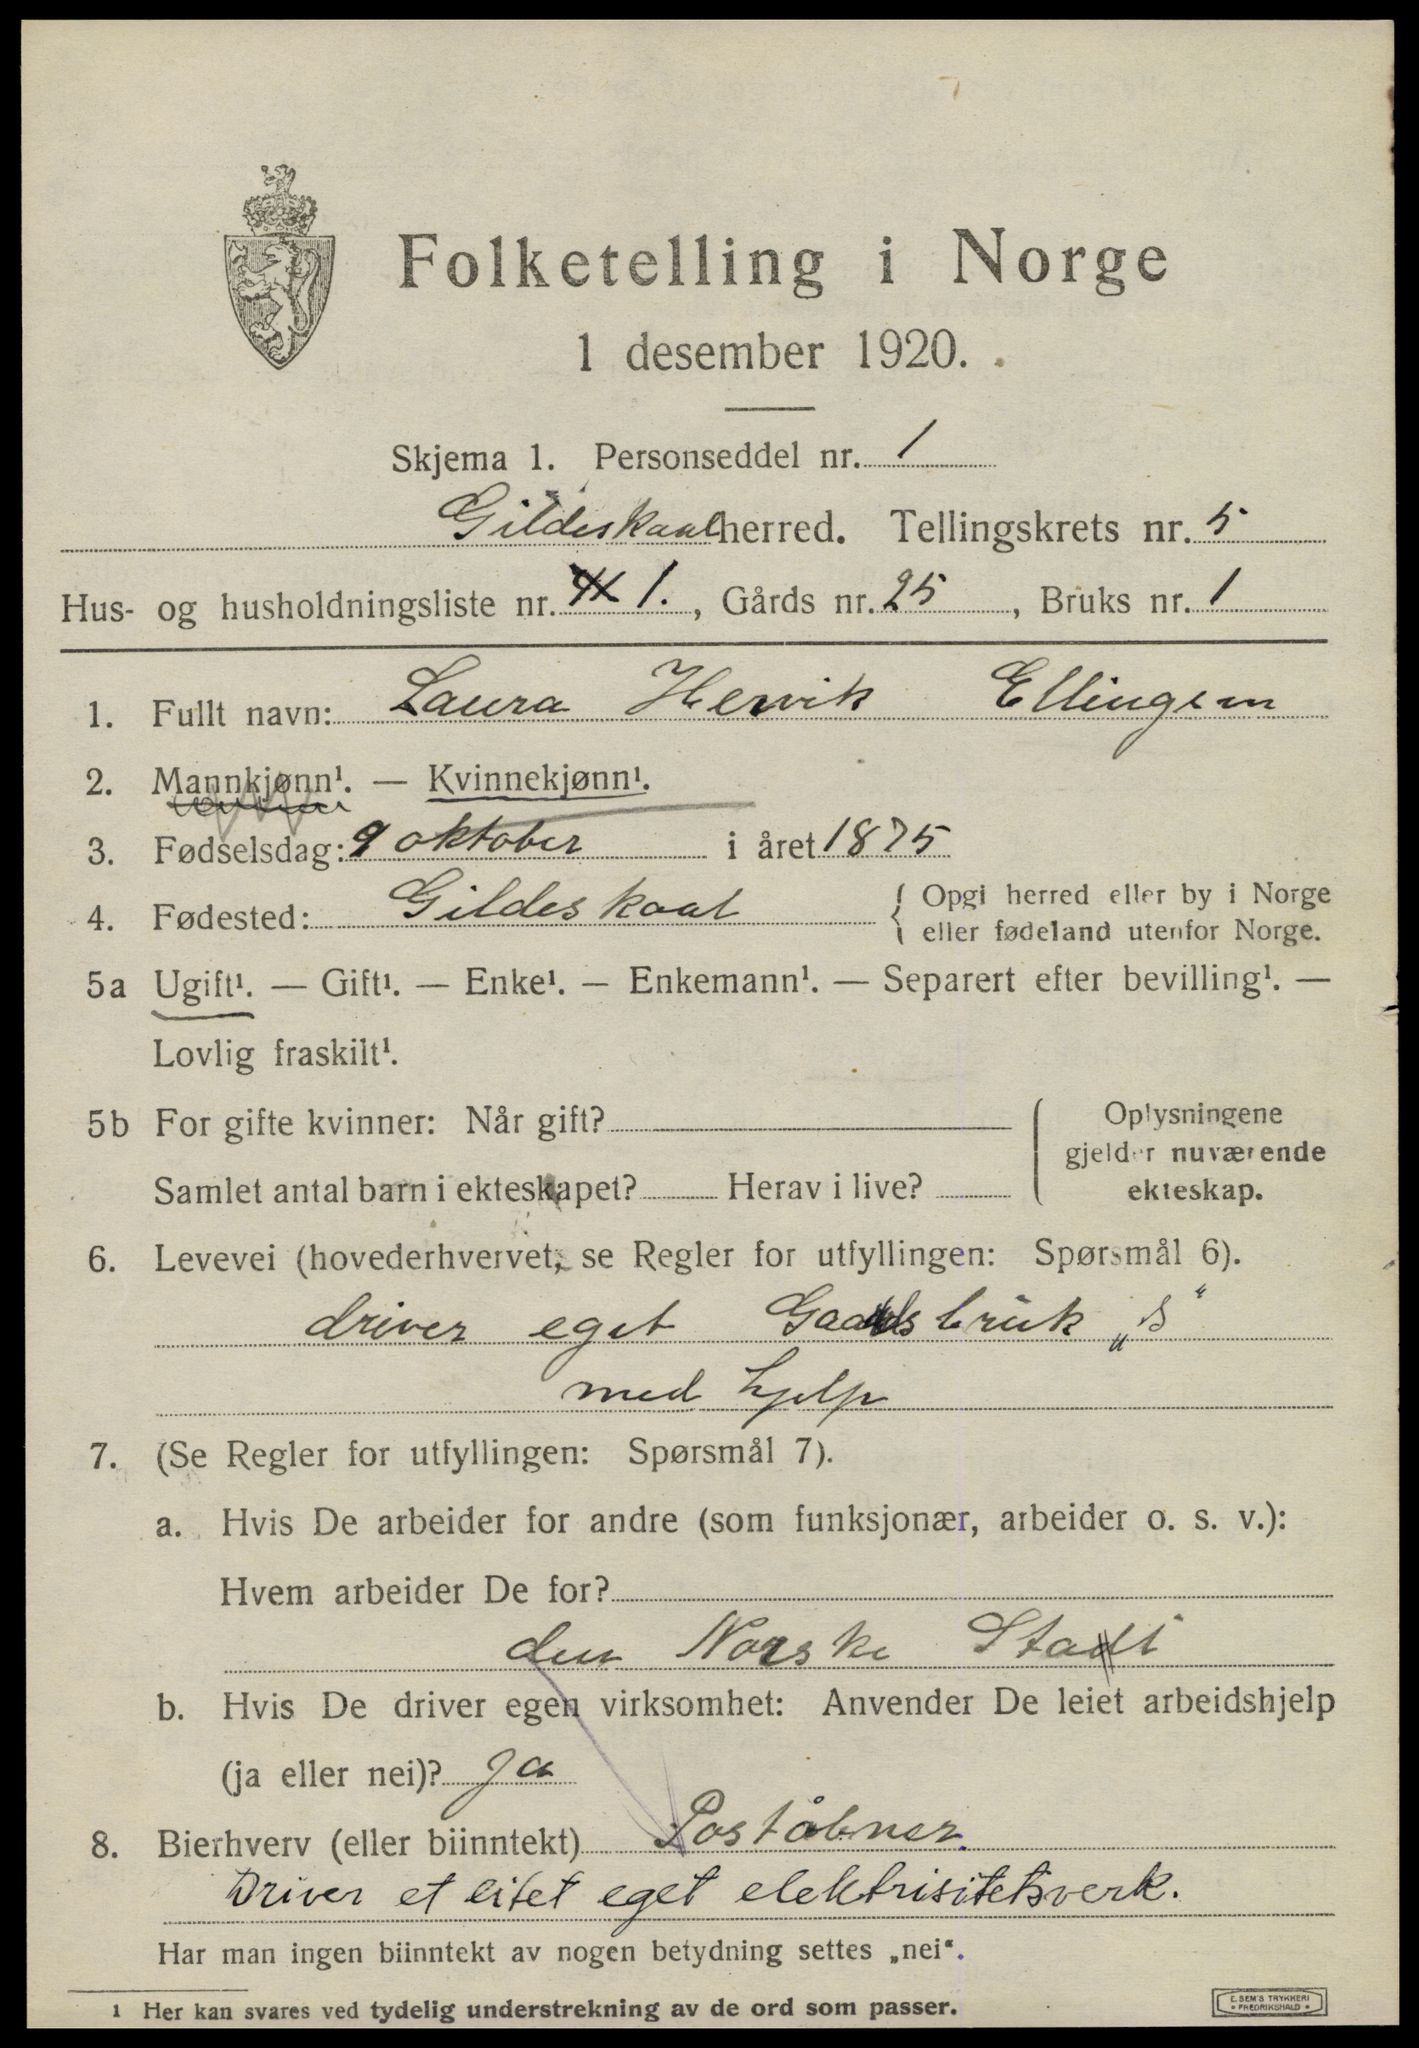 Folketelling i Norge
1 desember 1920.
Skjema 1. Personseddel nr. 1
Gildeskaal herred. Tellingskrets nr. 5
Hus- og husholdningsliste nr. 1., Gårds nr. 25, Bruks nr. 1
1. Fullt navn: Laura Hervik Ellingsen
2. Mannkjønn¹. — Kvinnekjønn¹.
3. Fødselsdag: 9 oktober i året 1875
4. Fødested: Gildeskaal { Opgi herred eller by i Norge
eller fødeland utenfor Norge.
5a Ugift¹. — Gift¹. — Enke¹. — Enkemann¹. — Separert efter bevilling¹. —
Lovlig fraskilt¹.
5b For gifte kvinner: Når gift?
Samlet antal barn i ekteskapet? Herav i live?
Oplysningene
gjelder nuværende
ekteskap.
6. Levevei (hovederhvervet, se Regler for utfyllingen: Spørsmål 6).
driver eget Gaardsbruk „S“
med hjelp
7. (Se Regler for utfyllingen: Spørsmål 7).
a. Hvis De arbeider for andre (som funksjonær, arbeider o. s. v.):
Hvem arbeider De for?
den Norske Stat
b. Hvis De driver egen virksomhet: Anvender De leiet arbeidshjelp
(ja eller nei)? Ja
8. Bierhverv (eller biinntekt) Poståbner.
Driver et litet eget elektrisitetsverk.
Har man ingen biinntekt av nogen betydning settes „nei“.
1 Her kan svares ved tydelig understrekning av de ord som passer.
E. SEM'S TRYKKERI
FREDRIKSHALD